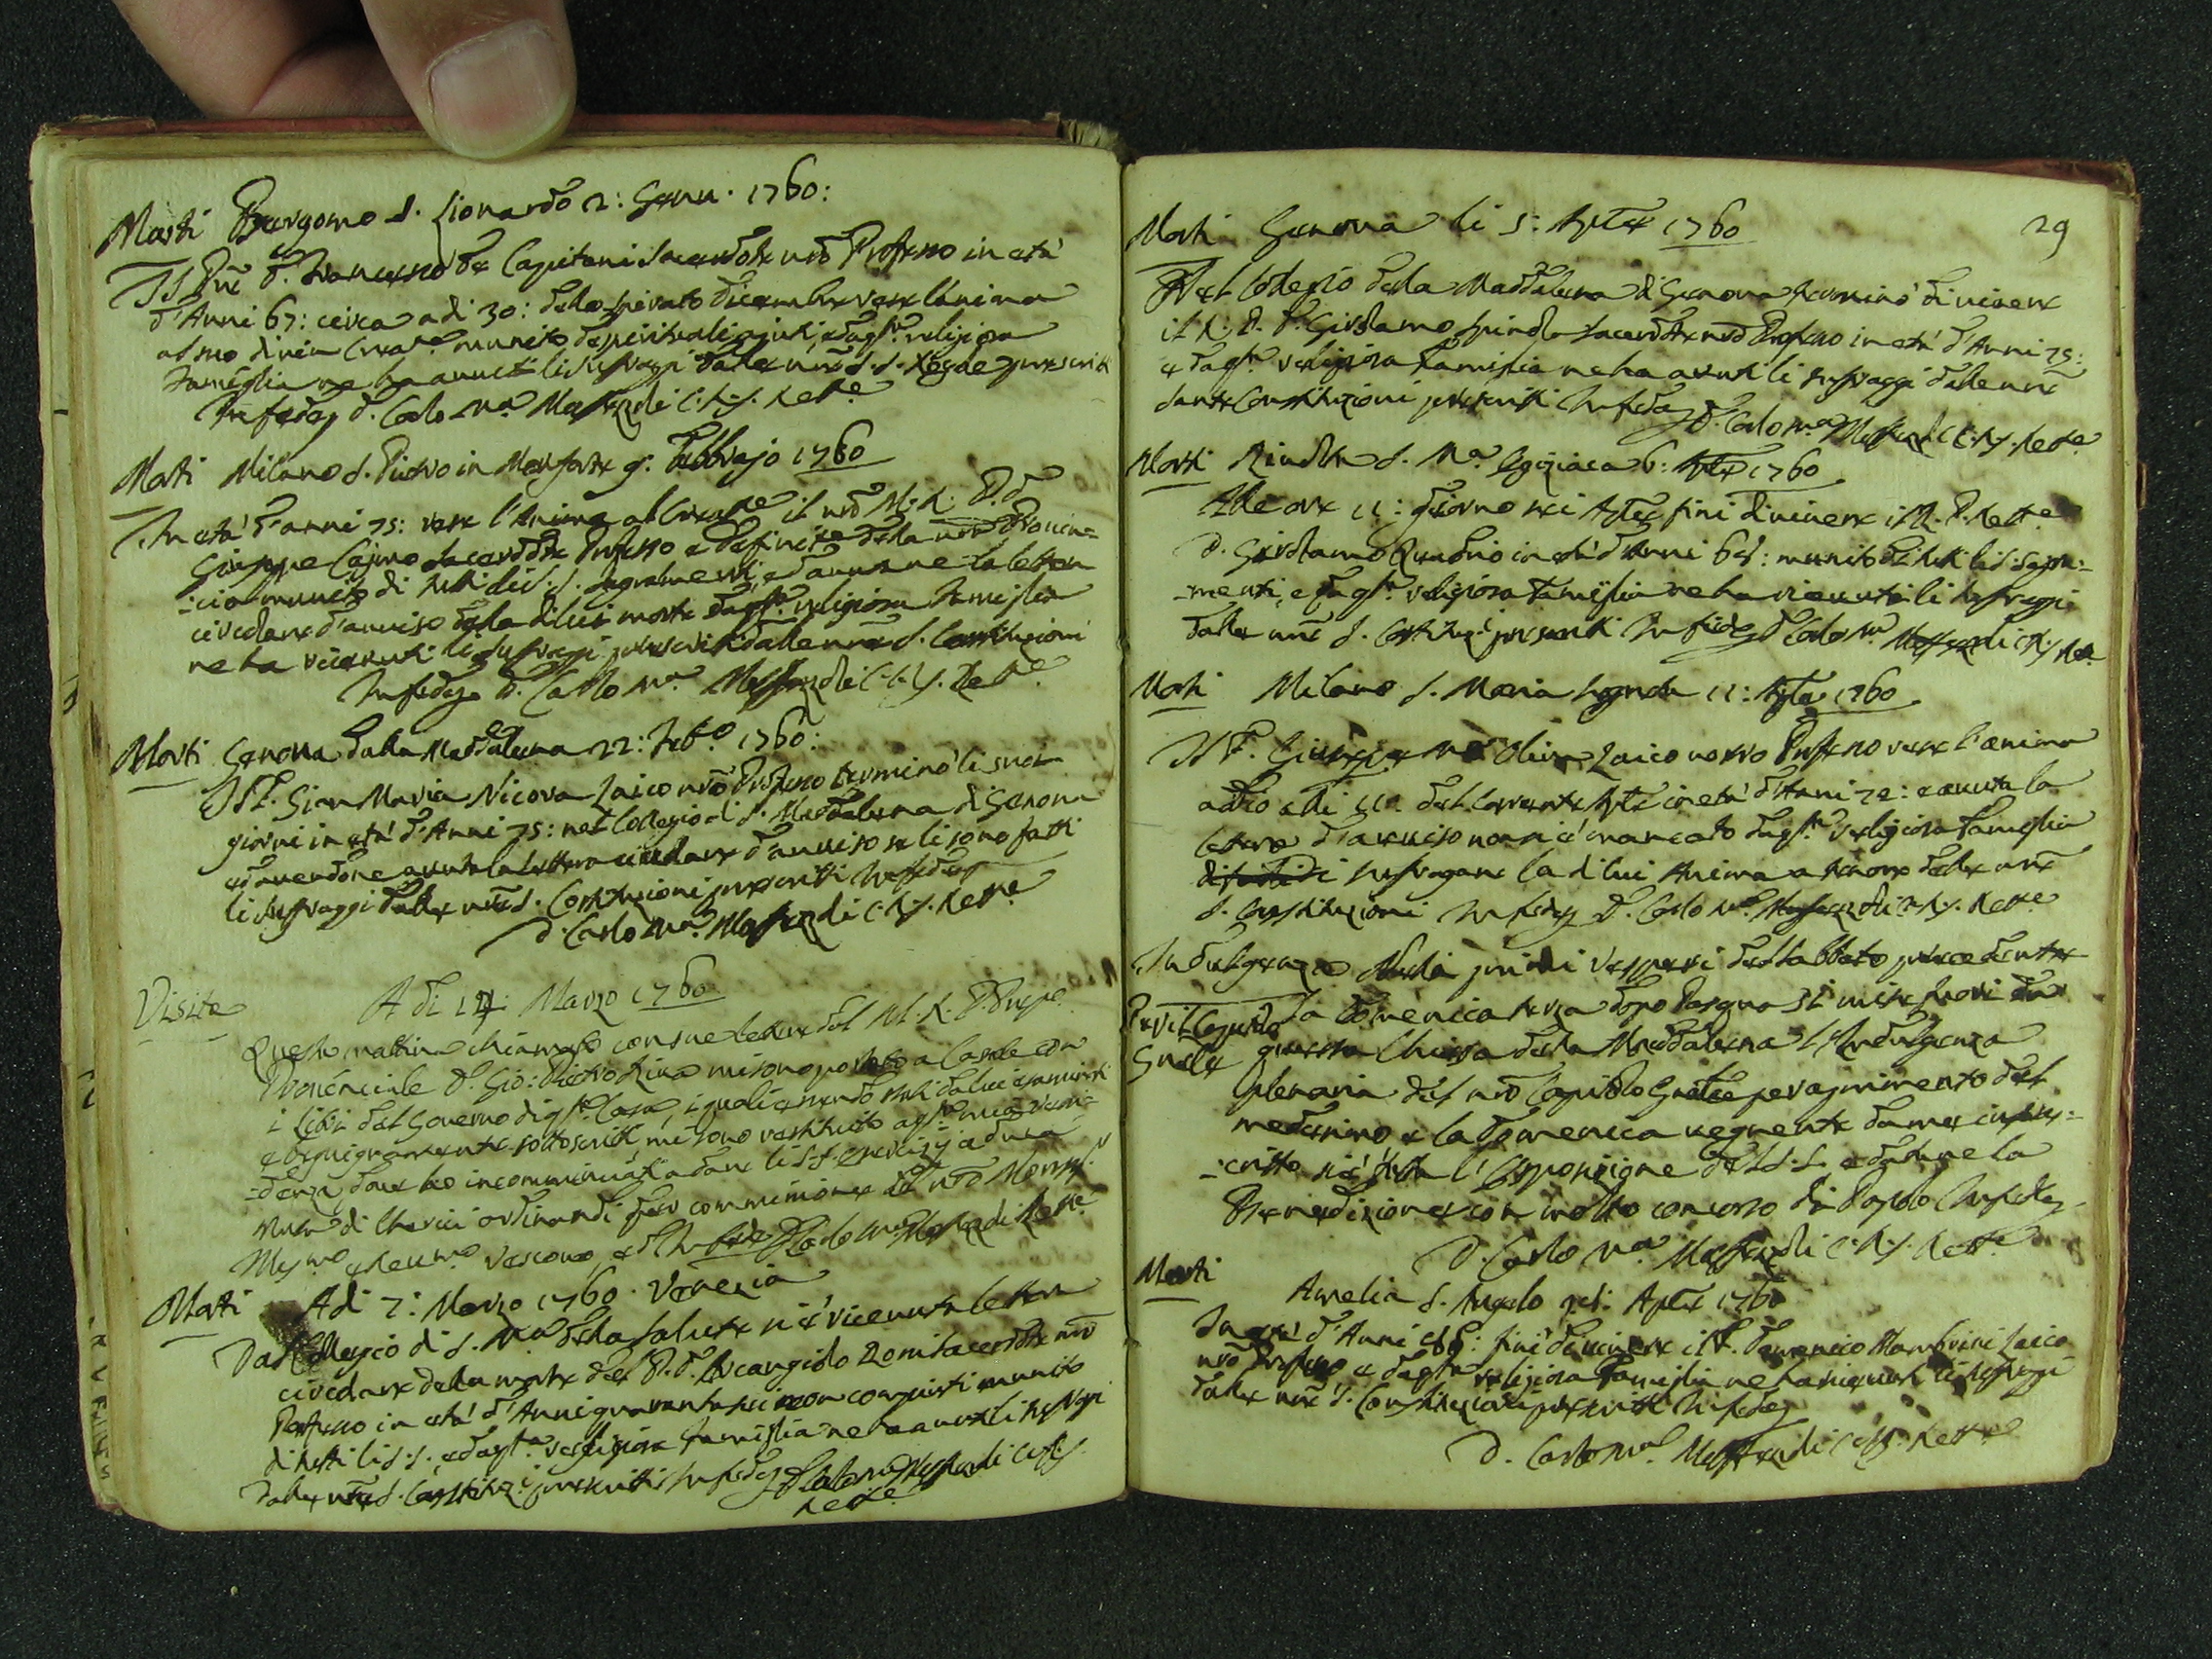 Morti Bergomo S. Lionardo 2: Genn. 1760:
Il Pre D. Francesco De Capitani Sacerdote nro Professo in età
d'Anni 67: circa adi 30: dello spirato Dicembre rese l'anima
al suo divin Creatre munito de spirituali ajuti, e da qsta religiosa
Famiglia ne ha avuti li suffragi dalle nre S.S. Regole prescritti
In fede D. Carlo Ma. Massandi C.R.S. Rettre
Morti Milano S. Pietro in Monforte 9: Febbrajo 1760
In età d'anni 75: rese l'Anima al Creatre il nro M.R. P. D.
Giuseppe Caimo Sacerdote Professo e Definitre della nra Provin=
=cia munito di tutti li S.S. Sagramenti, ed avutane la lettera
circolare d'avviso della di lui morte da qsta religiosa Famiglia
ne ha ricevuti li suffragi prescritti dalle nre S. Constituzioni
In fede D. Carlo Ma. C.R.S. Rettre
Morti Genova dalla Maddalena 22: Febo. 1760:
Il F. Gian Maria Nicora Laico nro Professo terminò li suoi
giorni in età d'Anni 75: nel Collegio di S. Maddalena di Genova
ed avendone avuta la lettera circolare d'avviso se li sono fatti
li suffraggi dalle nre S. Constituzioni prescritti In fede
D. Carlo Ma. C.R.S. Rettre
Visita A di 14: Marzo 1760
Questa mattina chiamato con sue lettere dal M.R. P. Prepo.
Provinciale D. Gio: Pietro Riva mi sono portato a Casale con
i Libri del Governo di qsta Casa, i quali essendo stati da lui esaminati
e benignamente sottoscritti mi sono restituito a qsta mia resi=
=denza, dove ho incominciato a dare li S.S. Esercizj ad una
muta di Cherici ordinandi per commissione di nro Monsr.
Illmo. e Revmo. Vescovo, ed In fede D. Carlo Ma. Rettre
Morti Adi 7: Marzo 1760. Venezia
Dal Collegio di S. Ma. della Salute si è ricevuta lettera
circolare della morte del P. D. Arcangiolo Sacerdote nro
Professo in età d'Anni quarantasei non compiuti munito
di tutti li S.S., e da qsta religiosa Famiglia ne ha avuti li suffragi
dalle nre S. Constituz.i prescritti In fede D. Carlo Ma. C.R.S.
Rettre
29
Morti Genova li 5: Aple 1760
Nel Collegio della Maddalena di Genova terminò di vivere
il R. P. D. Girolamo Spinola Sacerdote nro Professo in età d'Anni 75:
e da qsta religiosa Famiglia ne ha avuti li suffraggi dalle nre
sante Constituzioni prescritti In fede D. Carlo Ma. C.R.S. Rettre
Morti S. Ma. Egiziaca 6: Aple 1760
Alle ore 11: giorno sei Aple finì di vivere il M. P. Rettre
D. Girolamo Quadrio in età d'Anni 64: munito di tutti li S. Sagra=
=menti, e da qsta religiosa Famiglia ne ha ricevuti li suffraggi
dalle nre S. Costituz.i prescritti In fede D. Carlo Ma. C.R.S. Rettre
Morti Milano S. Maria Segreta 11: Aple 1760
Il F. Giuseppe Ma. Oliva Laico nostro Professo rese l'anima
a Dio alli del corrente Aple in età d'Anni 72: e avuta la
lettera d'avviso non si è mancato da qsta religiosa Famiglia
di suffragare la di lui Anima a tenore delle nre
S. Constituzioni In fede D. Carlo Ma. C.R.S. Rettre
Indulgenza Nelli primi Vesperi del Sabbato precedente
Pe'l Capitolo la Domenica terza dopo Pasqua si mise fuori da
Gnale questa Chiesa della Maddalena l'Indulgenza
plenaria del nro Capitolo Gnale per aprimento del
medesimo e la Domenica vegnente da me infras=
=critto si è fatta l'Esposizione del S.S. e datane la
Benedizione con molto concorso di Popolo In fede
D. Carlo Ma. C.R.S. Rettre
Morti
Amelia S. Angelo Aple 1760
In età d'Anni finì di vivere il F. Domenico Mambrini Laico
nro Professo e da qsta religiosa Famiglia ne ha ricevuti li suffraggi
dalle nre S. Constituzioni prescritti In fede
D. Carlo Ma. C.R.S. Rettre